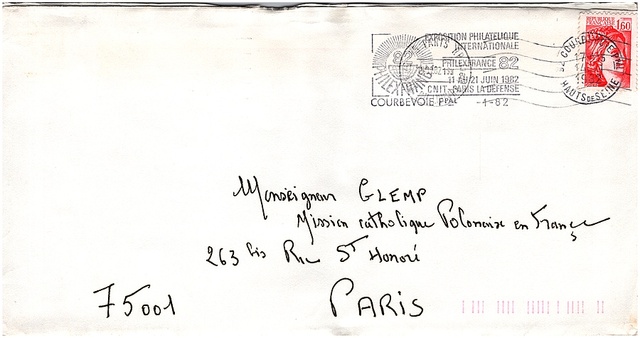 EXPOSITION PHILATELIQUE
INTERNATIONALE
PHILEXFRANCE 82
11 AU 21 JUIN 1982
CNIT - PARIS LA DEFENSE
PHILEXFRANCE
COURBEVOIE PPAL -1-82
1,60
COURBEVOIE PPAL
HAUTS DE SEINE
Monseigneur GLEMP
Mission catholique Polonaise en France
263 bis Rue St Honoré
75001 PARIS